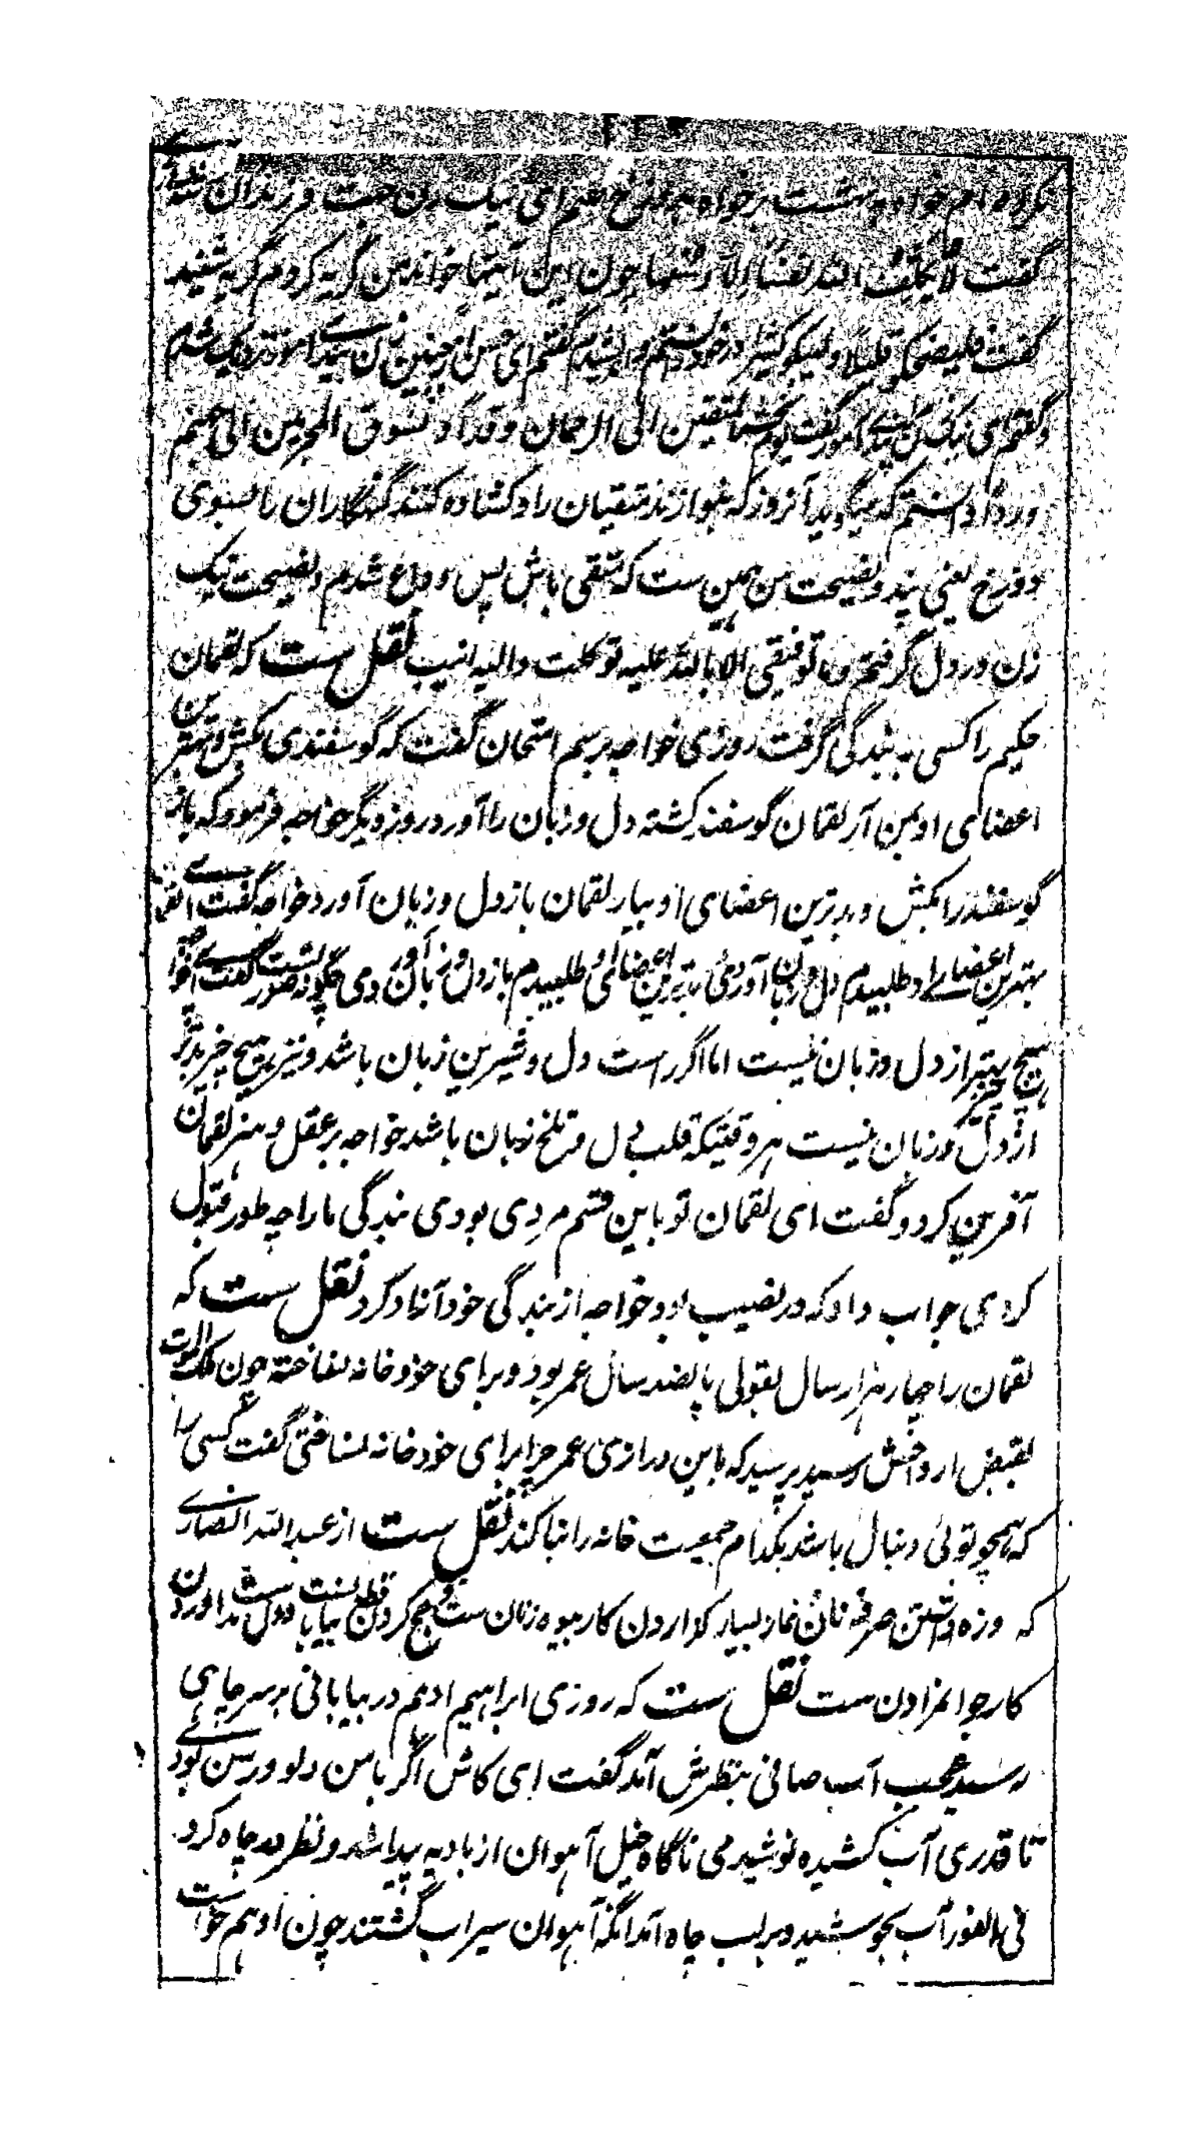 نکرده ام خواه به بهشت بر خواه بدوزخ گفتم ای نیک زن جهت فرزندان
گفت لا یکلف الله نفسا الا وسعها چون این آیتها خواند من گریه کردم گریه شنید
گفت فلیضحکوا قلیلا ولیبکوا کثیرا در خود گفتم ای حسن از چنین زن پند آموز نزدیک شدم
و گفتم ای نیک زن گفت یوم نحشر المتقین الی الرحمان وفدا و نسوق المجرمین الی جهنم
وردا دانستم که میگوید آنروز که بنوازند متقیان را و کشاده کنند گنهگاران را بسوی
دوزخ یعنی پند و نصیحت من همین ست که متقی باش پس وداع شدم و نصیحت نیک
زن در دل گرفتم و ما توفیقی الا بالله علیه توکلت والیه انیب نقل ست که لقمان
حکیم را کسی به بندگی گرفت روزی خواجه برسم امتحان گفت که گوسفندی بکش و بهترین
اعضای او بمن آر لقمان گوسفند کشته دل و زبان را آورد روز دیگر خواجه فرمود که باز
گوسفند را بکش و بدترین اعضای او بیار لقمان باز دل و زبان آورد خواجه گفت ای لقمان
بهترین اعضای او طلبیدم دل و زبان آوردی بدترین اعضای او طلبیدم باز دل و زبان آوردی چگونه صورتست گفت ای خواجه
هیچ چیز بهتر از دل و زبان نیست اما اگر راست دل و شیرین زبان باشد و نیز هیچ چیز بدتر
از دل و زبان نیست هر وقتیکه قلب دل و تلخ زبان باشد خواجه بر عقل و هنر لقمان
آفرین کرد و گفت ای لقمان تو باین قسم مردی بودی بندگی ما را چه طور قبول
کردی جواب داد که در نصیب بود خواجه از بندگی خود آزاد کرد نقل ست که
لقمان را چهار هزار سال بقولی پانصد سال عمر بود و برای خود خانه نساخته چون ملک الموت
بقبض ارواحش رسید پرسید که باین درازی عمر چرا برای خود خانه نساختی گفت کسی را
که همچو توئی دنبال باشد بکدام جمعیت خانه را بنا کند نقل ست از عبدالله انصاری
که روزه داشتن صرفه نان نماز بسیار گذاردن کار بیوه زنان ست و حج کردن گشت بیابان ست دل بدست آوردن
کار جوانمردان ست نقل ست که روزی ابراهیم ادهم در بیابانی بر سر چاهی
رسید عجیب آب صافی بنظرش آمد گفت ای کاش اگر با من دلو و رسن بودی
تا قدری آب کشیده نوشیدمی ناگاه خیل آهوان از بادیه پیدا شد و نظر در چاه کرد
فی الفور آب بجوشید و بر لب چاه آمد آنگه آهوان سیراب گشتند چون ادهم خواست